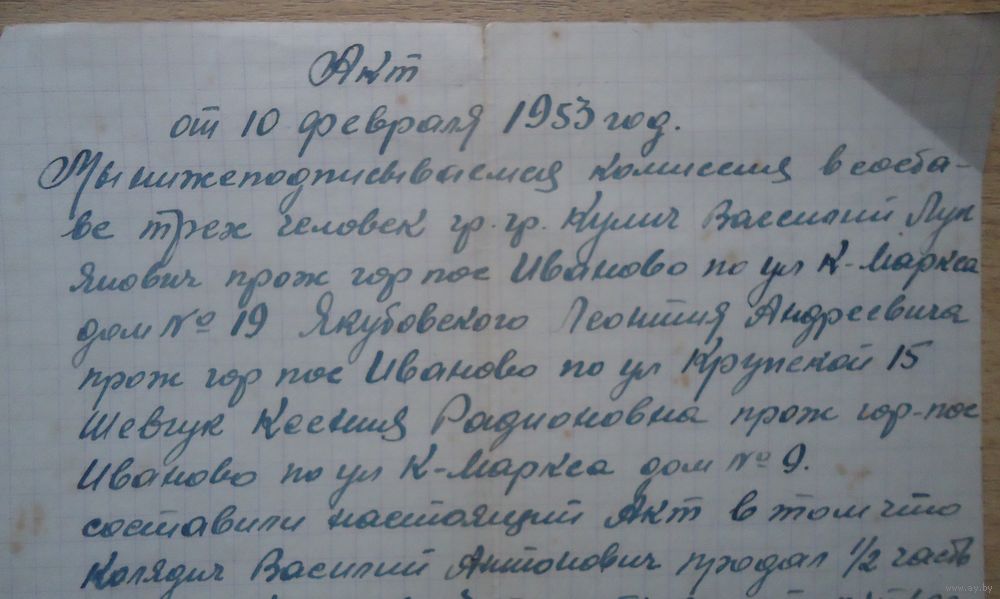 Акт
от 10 февраля 1953 год.
Мы нижеподписываемся комиссия в соста-
ве трех человек гр. гр. Кулич Василий Лук
янович прож гор пос Иваново по ул К-Маркса
дом № 19 Якубовского Леонтия Андреевича
прож гор пос Иваново по ул Крупской 15
Шевчук Ксения Радионовна прож гор-пос
Иваново по ул К-Маркса дом № 9.
составили настоящий Акт в том что
Колядич Василий Антонович продал 1/2 часть
www.ay.by